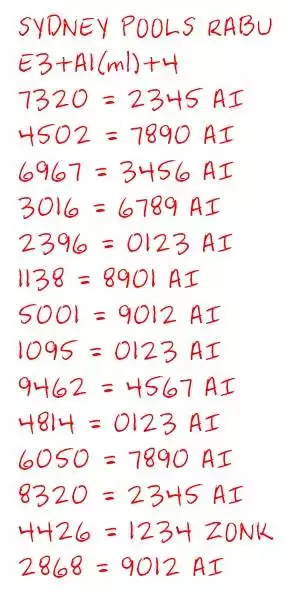 SYDNEY POOLS RABU
E3+A1(ml)+4
7320 = 2345 AI
4502 = 7890 AI
6967 = 3456 AI
3016 = 6789 AI
2396 = 0123 AI
1138 = 8901 AI
5001 = 9012 AI
1095 = 0123 AI
9462 = 4567 AI
4814 = 0123 AI
6050 = 7890 AI
8320 = 2345 AI
4426 = 1234 ZONK
2868 = 9012 AI